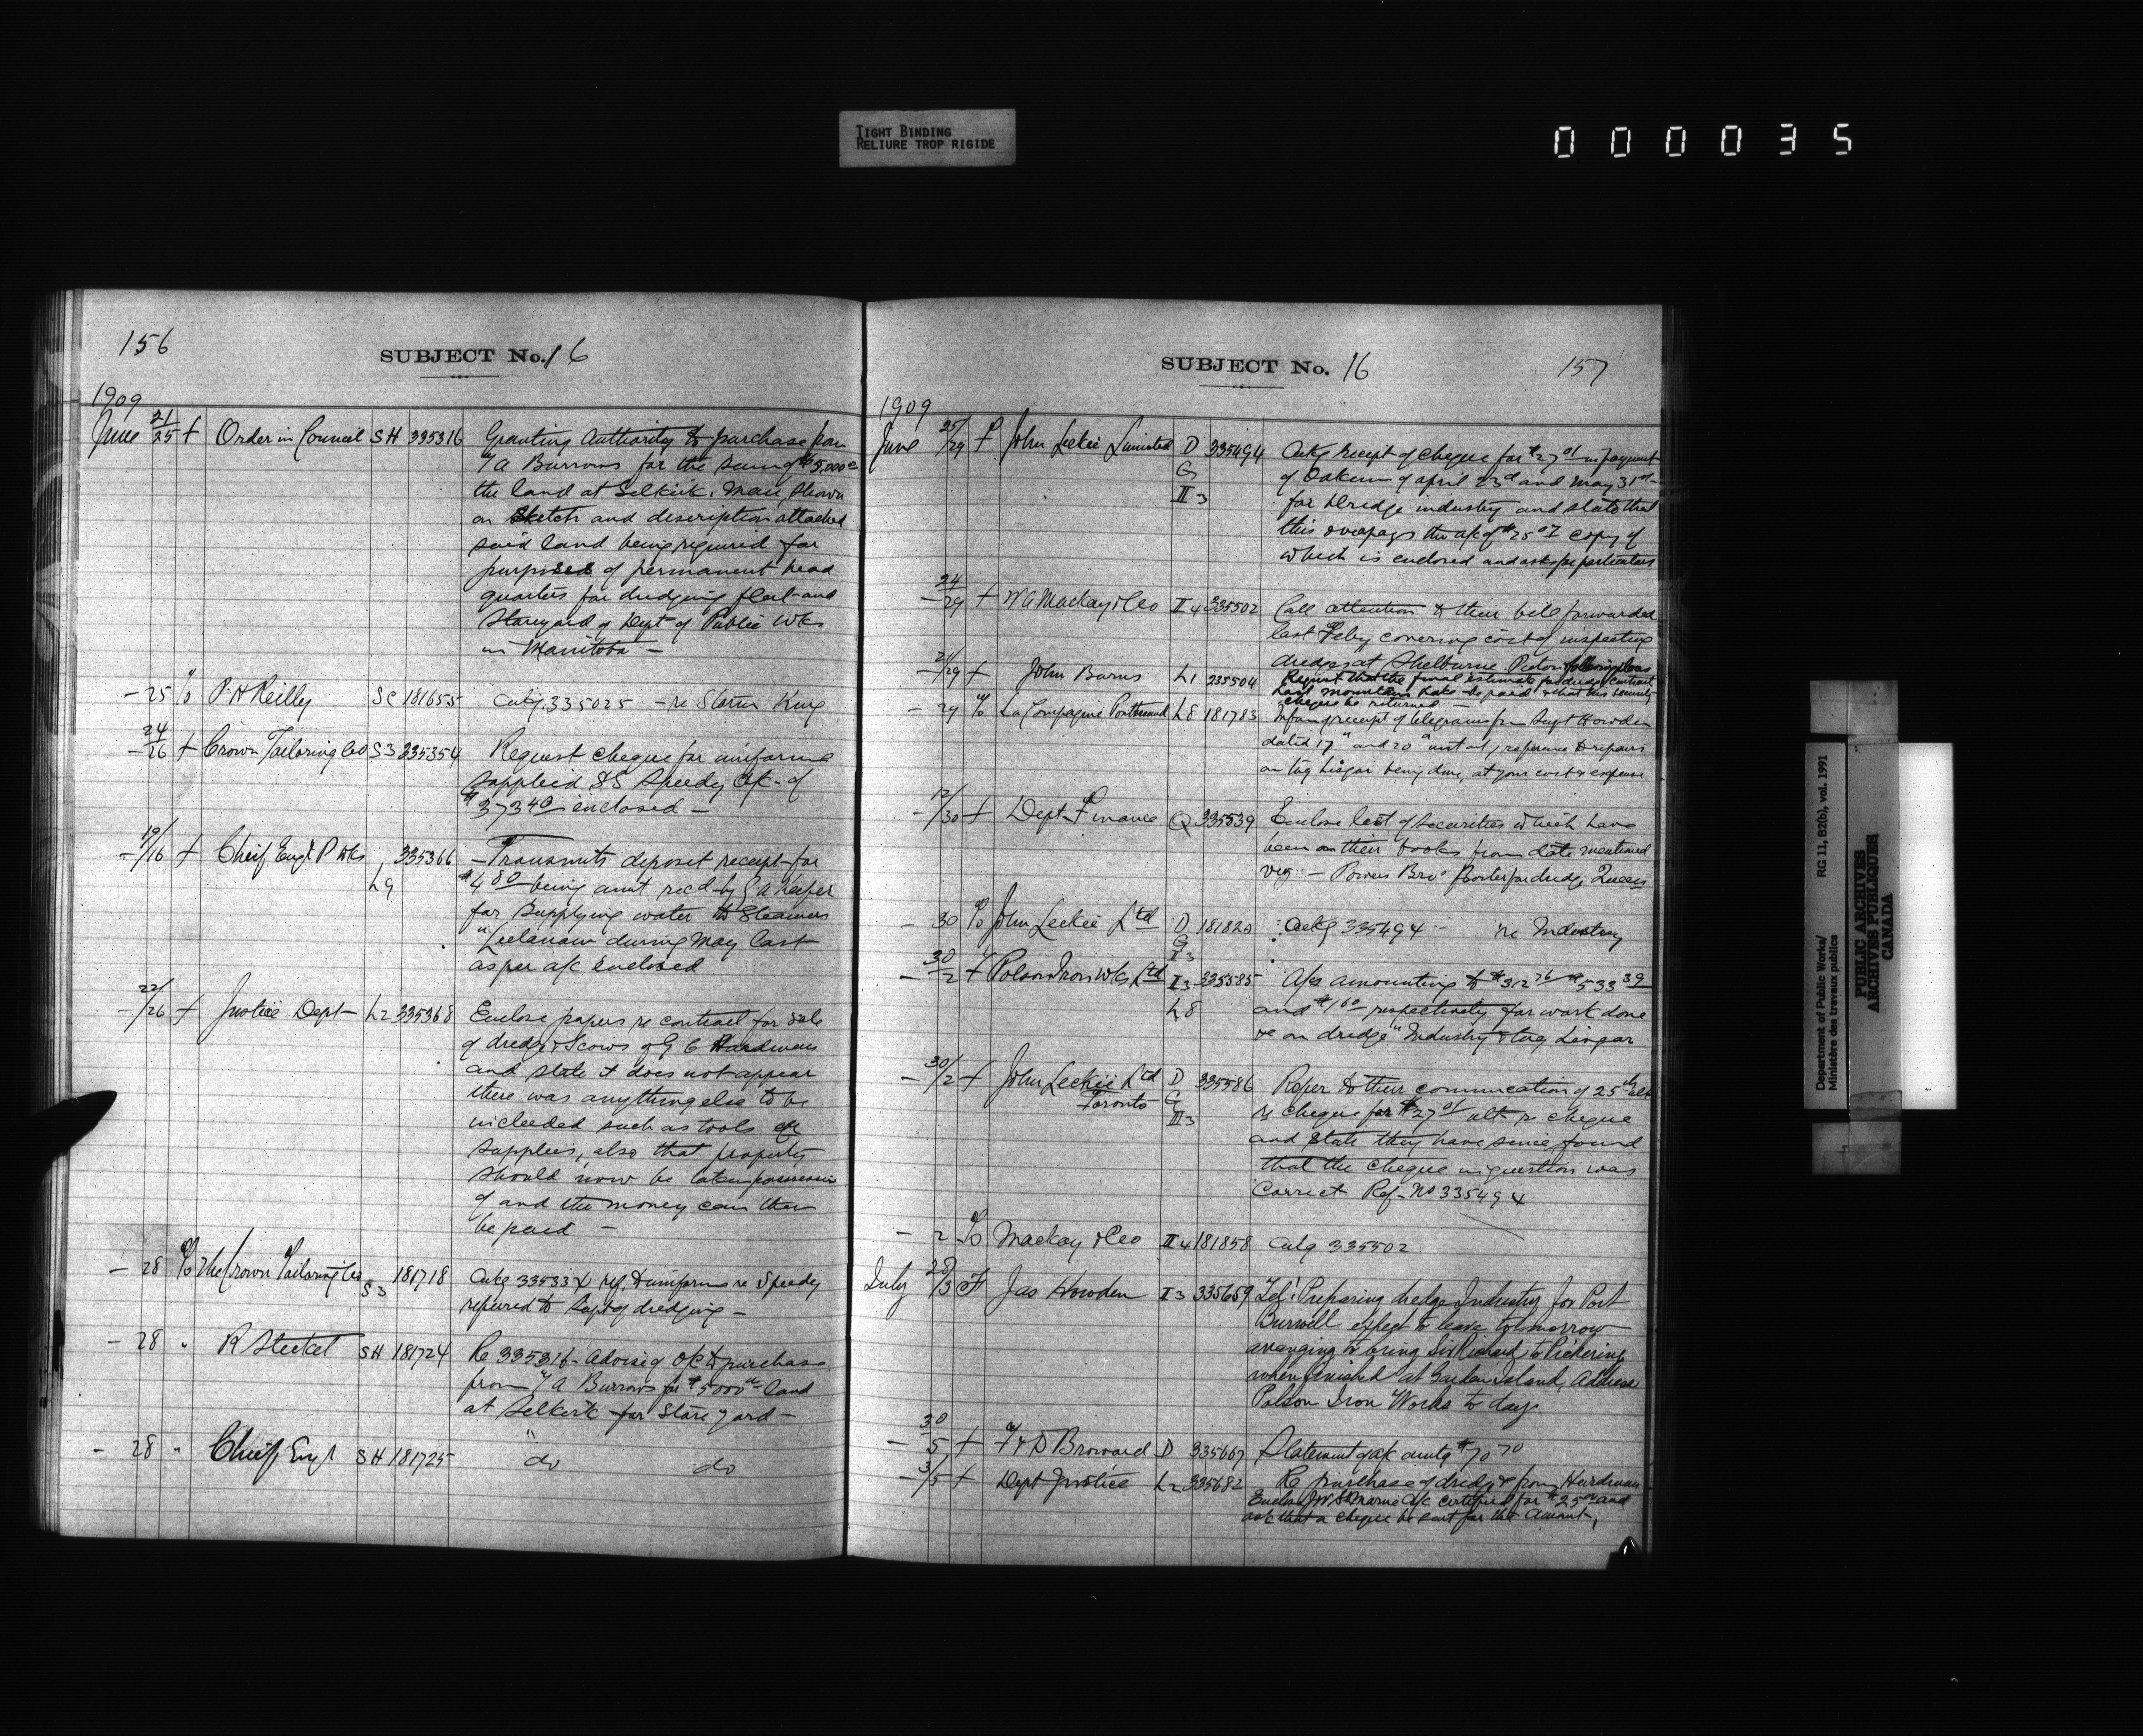 TIGHT BINDING
RELIURE TROP RIGIDE
000035
156
SUBJECT No. 16
1909
June 21/25 f Order in Council SH 335316 Granting Authority to purchase from
T A Burrows for the sum of $5,000
the land at Selkirk, Man, shown
on sketch and description attached
said land being required for
purposes of permanent head
quarters for dredging fleet and
Storeyard of Dept of Public Wks
in Manitoba —
— 25 To P. H Reilly SC 181655 Ackg 335025 — re Storm King
— 24/26 f Crown Tailoring Co S3 335354 Request cheque for uniforms
supplied SS Speedy a/c of
$373 40 enclosed —
— 19/16 f Cheif Engr P Wks L9 335366 — Transmits deposit receipt for
$4 80 being amt recd by
for supplying water to Steamers
"Leelanaw during May last
as per a/c enclosed
— 22/26 f Justice Dept — L2 335368 Enclose papers re contract for sale
of dredge & Scows of G C Hurdman
and state it does not appear
there was anything else to be
included such as tools or
supplies, also that property
should now be taken possession
of and the money can then
be paid —
— 28 To The Crown Tailoring Co S3 181718 Ackg 335354 ref. to uniforms re Speedy
referred to Supt of dredging —
— 28 " R Steckel SH 181724 Re 335316 - Advising O/C to purchase
from T A Burrows for $5000 land
at Selkirk for Store yard —
— 28 " Chief Engr SH 181725 " do do
SUBJECT No. 16
157
1909
June 25/29 f John Leckie Limited D G II3 335494 Ackg receipt of cheque for $27 01 in payment
of Oakum of april 23d and May 31st
for dredge industry and state that
this overpays the a/c of $25 07 copy of
which is enclosed and asks for particulars
— 24/29 f W A Mackay & Co II4 335502 Call attention to their bill forwarded
last Feby covering cost of inspecting
dredges at Shelburne Pictou & following places
— 21/29 f John Burns L1 235504 Request that the final estimate for dredge contract
Last Mountain Lake be paid & that this security
cheque be returned —
— 29 To La Compagnie Pontbriand L8 181783 Inform of receipt of telegrams from Supt Howden
dated 17" and 20" inst reference to repairs
on tug Lisgar being done, at your cost & expense
— 12/30 f Dept Finance Q 335539 Enclose list of securities which have
been on their books from date mentioned
viz — Powers Bros Boiler for dredge Queen
— 30 To John Leckie Ltd D G I3 181820 Ackg 335494 - re Industry
— 30/2 f Polson Iron Wks Ltd I3 L8 335585 A/cs amounting to $312 76 $533 39
and $1 60 respectively for work done
re on dredge "Industry & tug Lisgar
— 30/2 f John Leckie Ltd Toronto D G II3 335586 Refer to their communcation of 25th ult
re cheque for $27 01 ult re cheque
and state they have since found
that the cheque in question was
Correct Ref - No 335494
— 2 To Mackay & Co II4 181858 Ackg 335502
July 28/3 f Jas Howden I3 335659 Tel! Preparing dredge Industry for Port
Burwell expect to leave tomorrow
arranging to bring Sir Richard to Pickering
when finished at Garden Island, Address
Polson Iron Works to day
— 30/5 f F & D Broward D 335667 Statement of a/c amtg $70 70
— 3/5 f Dept Justice L2 335682 Re purchase of dredge from Hurdman
Enclose a/c certified for $25 00 and
ask that a cheque be sent for the Amount,
Department of Public Works/ RG 11, B2(b), vol. 1991
Ministère des travaux publics
PUBLIC ARCHIVES
ARCHIVES PUBLIQUES
CANADA